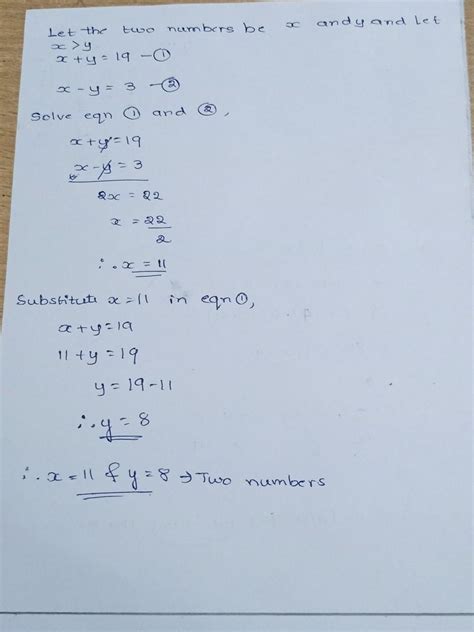 Let the two numbers be x and y and let
x > y
x + y = 19 — ①
x - y = 3 — ②
Solve eqn ① and ②,
x + y = 19
x - y = 3
2x = 22
x = 22
2
∴ x = 11
Substitute x = 11 in eqn ①,
x + y = 19
11 + y = 19
y = 19 - 11
∴ y = 8
∴ x = 11 & y = 8 → Two numbers